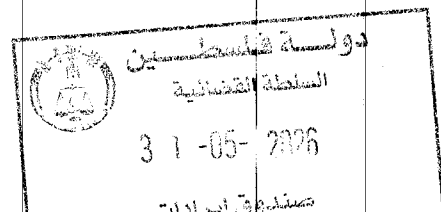 دولة فلسطين
السلطة القضائية
31-05-2026
صندوق ايرادات